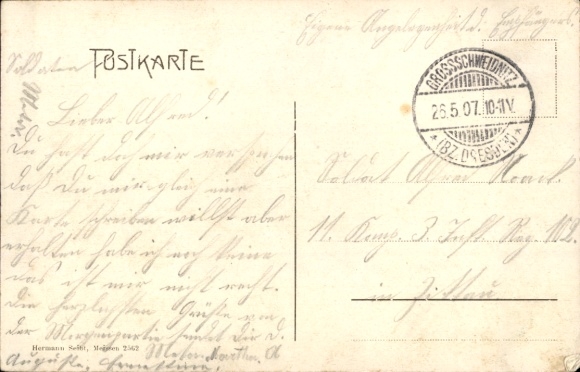 Eigene Angelegenheit d. Empfängers.
Soldaten
POSTKARTE
GROSSSCHWEIDNITZ
26.5.07. 10-11V.
* (BZ. DRESDEN) *
Lieber Alfred!
Du hast doch mir versprochen
daß Du mir gleich eine
Karte schreiben willst aber
erhalten habe ich noch keine
das ist mir nicht recht.
Die herzlichsten Grüße von
der Morgenpartie sendet Dir d.
Martha
Auguste.
Hermann Seibt, Meissen 2562
Soldat Alfred Noack
11. Komp. 3. Inft. Reg. 102.
in Zittau